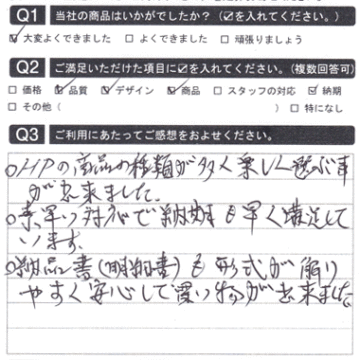 Q1 当社の商品はいかがでしたか？（☑を入れてください。）
☑ 大変よくできました □ よくできました □ 頑張りましょう
Q2 ご満足いただけた項目に☑を入れてください。（複数回答可）
□ 価格 ☑ 品質 ☑ デザイン ☑ 商品 □ スタッフの対応 ☑ 納期
□ その他（ ） □ 特になし
Q3 ご利用にあたってご感想をおよせください。
○HPの商品の種類が多く楽しく選ぶ事
が出来ました。
○素早い対応で納期も早く満足して
います。
○納品書(明細書)も形式が解り
やすく安心して買い物が出来ました。